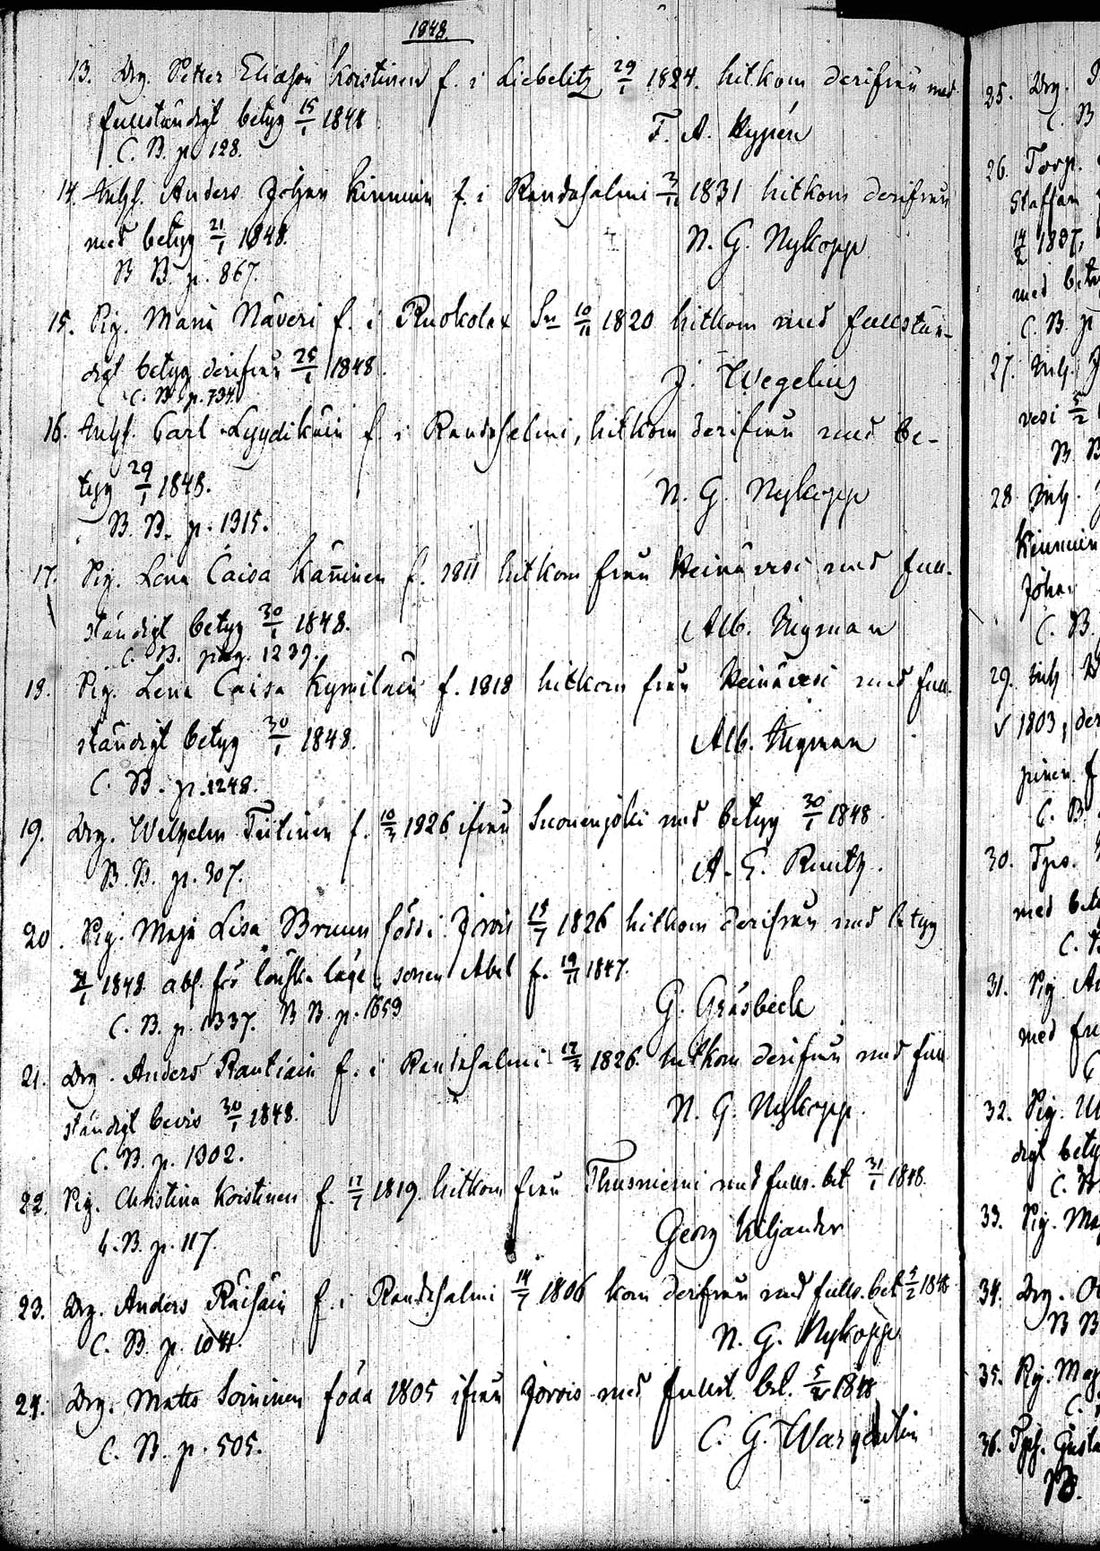 1848.
13. Drg. Petter Eliasson Koistinen f. i Liebelitz 29/1 1824. hitkom derifrån med
fullständigt betyg 15/1 1848
F. A. Nypén
C. B. p. 128.
14. Inhys. Anders Johan Kinnunen f. i Randasalmi 1831 hitkom derifrån
med betyg 21/1 1848.
N. G. Nykopp
B. B. p. 867.
15. Pig. Maria Näveri f. i Ruokolax Sn 10/11 1820 hitkom med fullstän-
digt betyg derifrån 25/1 1848
J. Wegelius
C. B. p. 734.
16. Inhys. Carl Lyydikäin f. i Randasalmi, hitkom derifrån med be-
tyg 29/1 1848.
N. G. Nykopp
B. B. p. 1315.
17. Pig. Lena Caisa Kaninen f. 1811 hitkom från Heinävesi med full-
ständigt betyg 30/1 1848.
Alb. Nyman
C. B. pag. 1239.
18. Pig. Lena Caisa Kymiläin f. 1818 hitkom från Heinävesi med full-
ständigt betyg 30/1 1848.
Alb. Nyman
C. B. p. 1248.
19. Drg. Wilhelm Tiitinen f. 1826 ifrån Suonenjoki med betyg 30/1 1848
A. E. Runtz.
B. B. p. 307.
20. Pig. Maja Lisa Bruun född i Jorois 15/7 1826 hitkom derifrån med betyg
1848 abs. för lönska läge, sonen Abel f. 19/11 1847.
G. Gråsbeck
C. B. p. 1337. B B. p. 1659
21. Drg. Anders Rautiain f. i Randasalmi 1826. hitkom derifrån med full-
ständigt bevis 30/1 1848.
N. G. Nykopp.
C. B. p. 1302.
22. Pig. Christina Koistinen f. 17/7 1819. hitkom från Thusniemi med fulls. bet 31/1 1848.
Georg Kiljander
C. B. p. 117.
23. Drg. Anders Räisäin f. i Randasalmi 14/7 1806 kom derifrån med fulls. bet 5/2 1848
N. G. Nykopp
C. B. p. 1041.
24. Drg. Matts Soininen född 1805 ifrån Jorois med fullst. bet. 5/2 1848
C. G. Wargentin
C. B. p. 505.
25. Drg.
C. B
26. Torp.
Staffan
1837,
med bety
C. B. p
27. Inh. J
vesi 5/2
B. B
28. Inh.
Kinnunen
Johan
C. B.
29. Inh
1803, der
pinen f
C. B.
30.
med bet
C. B
31. Pig
med ful
C
32. Pig.
digt bety
C. B
33. Pig. Maj
34. Drg.
B B
35. Pig. Maj
C.
36. Gusta
B.